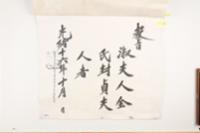 敎旨
淑夫人金
氏封貞夫
人者
光緖十六年十月 日